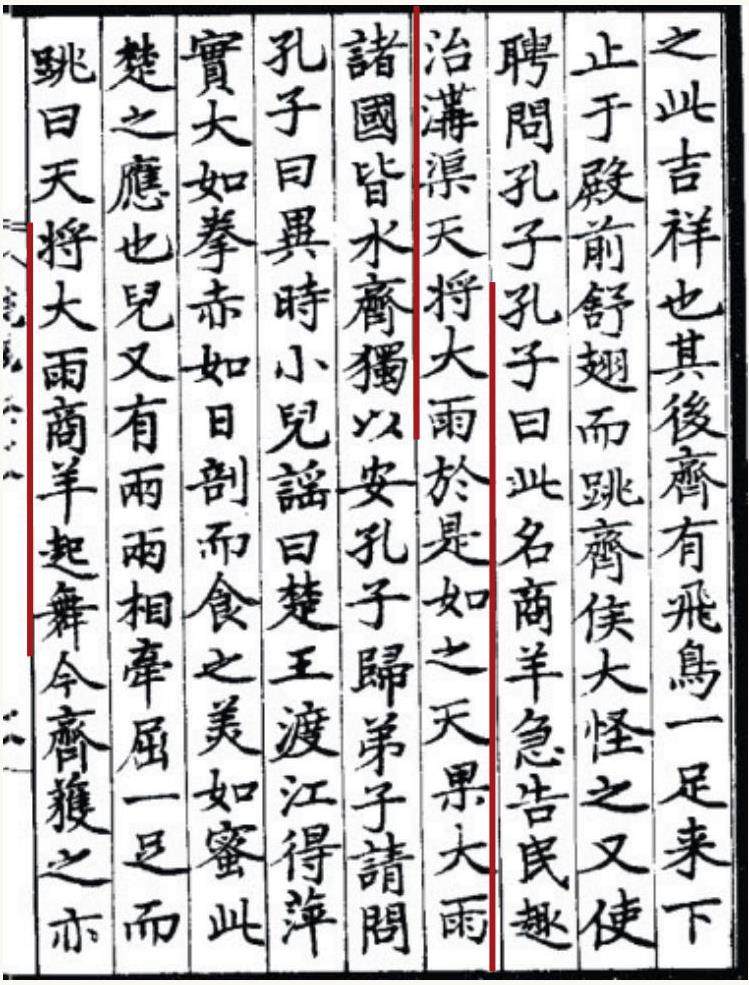 之此吉祥也其後齊有飛鳥一足来下
止于殿前舒翅而跳齊侯大怪之又使
聘問孔子孔子曰此名商羊急告民趣
治溝渠天将大雨於是如之天果大雨
諸國皆水齊獨以安孔子歸弟子請問
孔子曰異時小兒謡曰楚王渡江得萍
實大如拳赤如日剖而食之美如蜜此
楚之應也兒又有兩兩相牽屈一足而
跳曰天将大雨商羊起舞今齊獲之亦